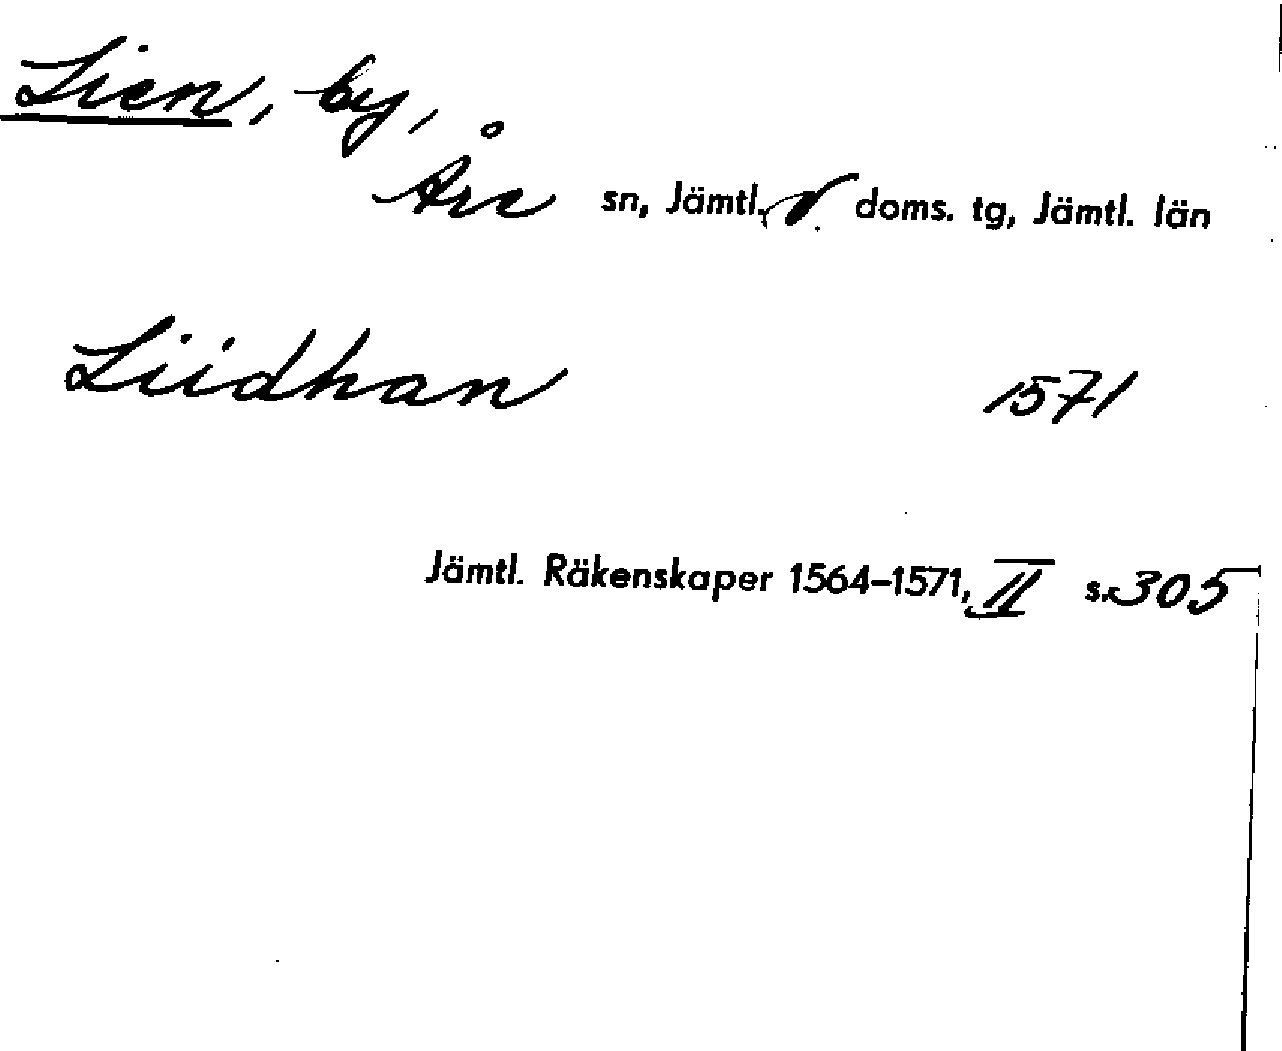 Lien, by,
Åre sn, Jämtl. v. doms. tg, Jämtl. län
Liidhan 1571
Jämtl. Räkenskaper 1564–1571, II s. 305